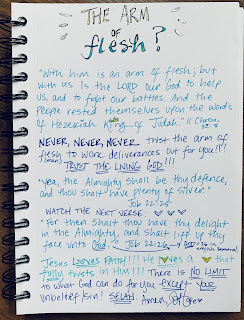 THE ARM
OF
flesh?
"With him is an arm of flesh; but
with us is the LORD our God to help
us, and to fight our battles. And the
people rested themselves upon the words
of Hezekiah King of Judah." II Chron.
32:8
NEVER, NEVER, NEVER trust the arm of
flesh to work deliverances out for you!!!
(man) TRUST THE LIVING GOD!!!
"Yea, the Almighty shall be thy defence,
and thou shalt have plenty of silver."
Job 22:25
WATCH THE NEXT VERSE:
"For then shalt thou have thy delight
in the Almighty, and shalt lift up thy
face unto God." Job 22:26
Jesus Loves FAITH!!! He loves a
that fully trusts in HIM!!! There is NO LIMIT
to what God can do for you except your
unbelief/sin! SELAH. Amen,